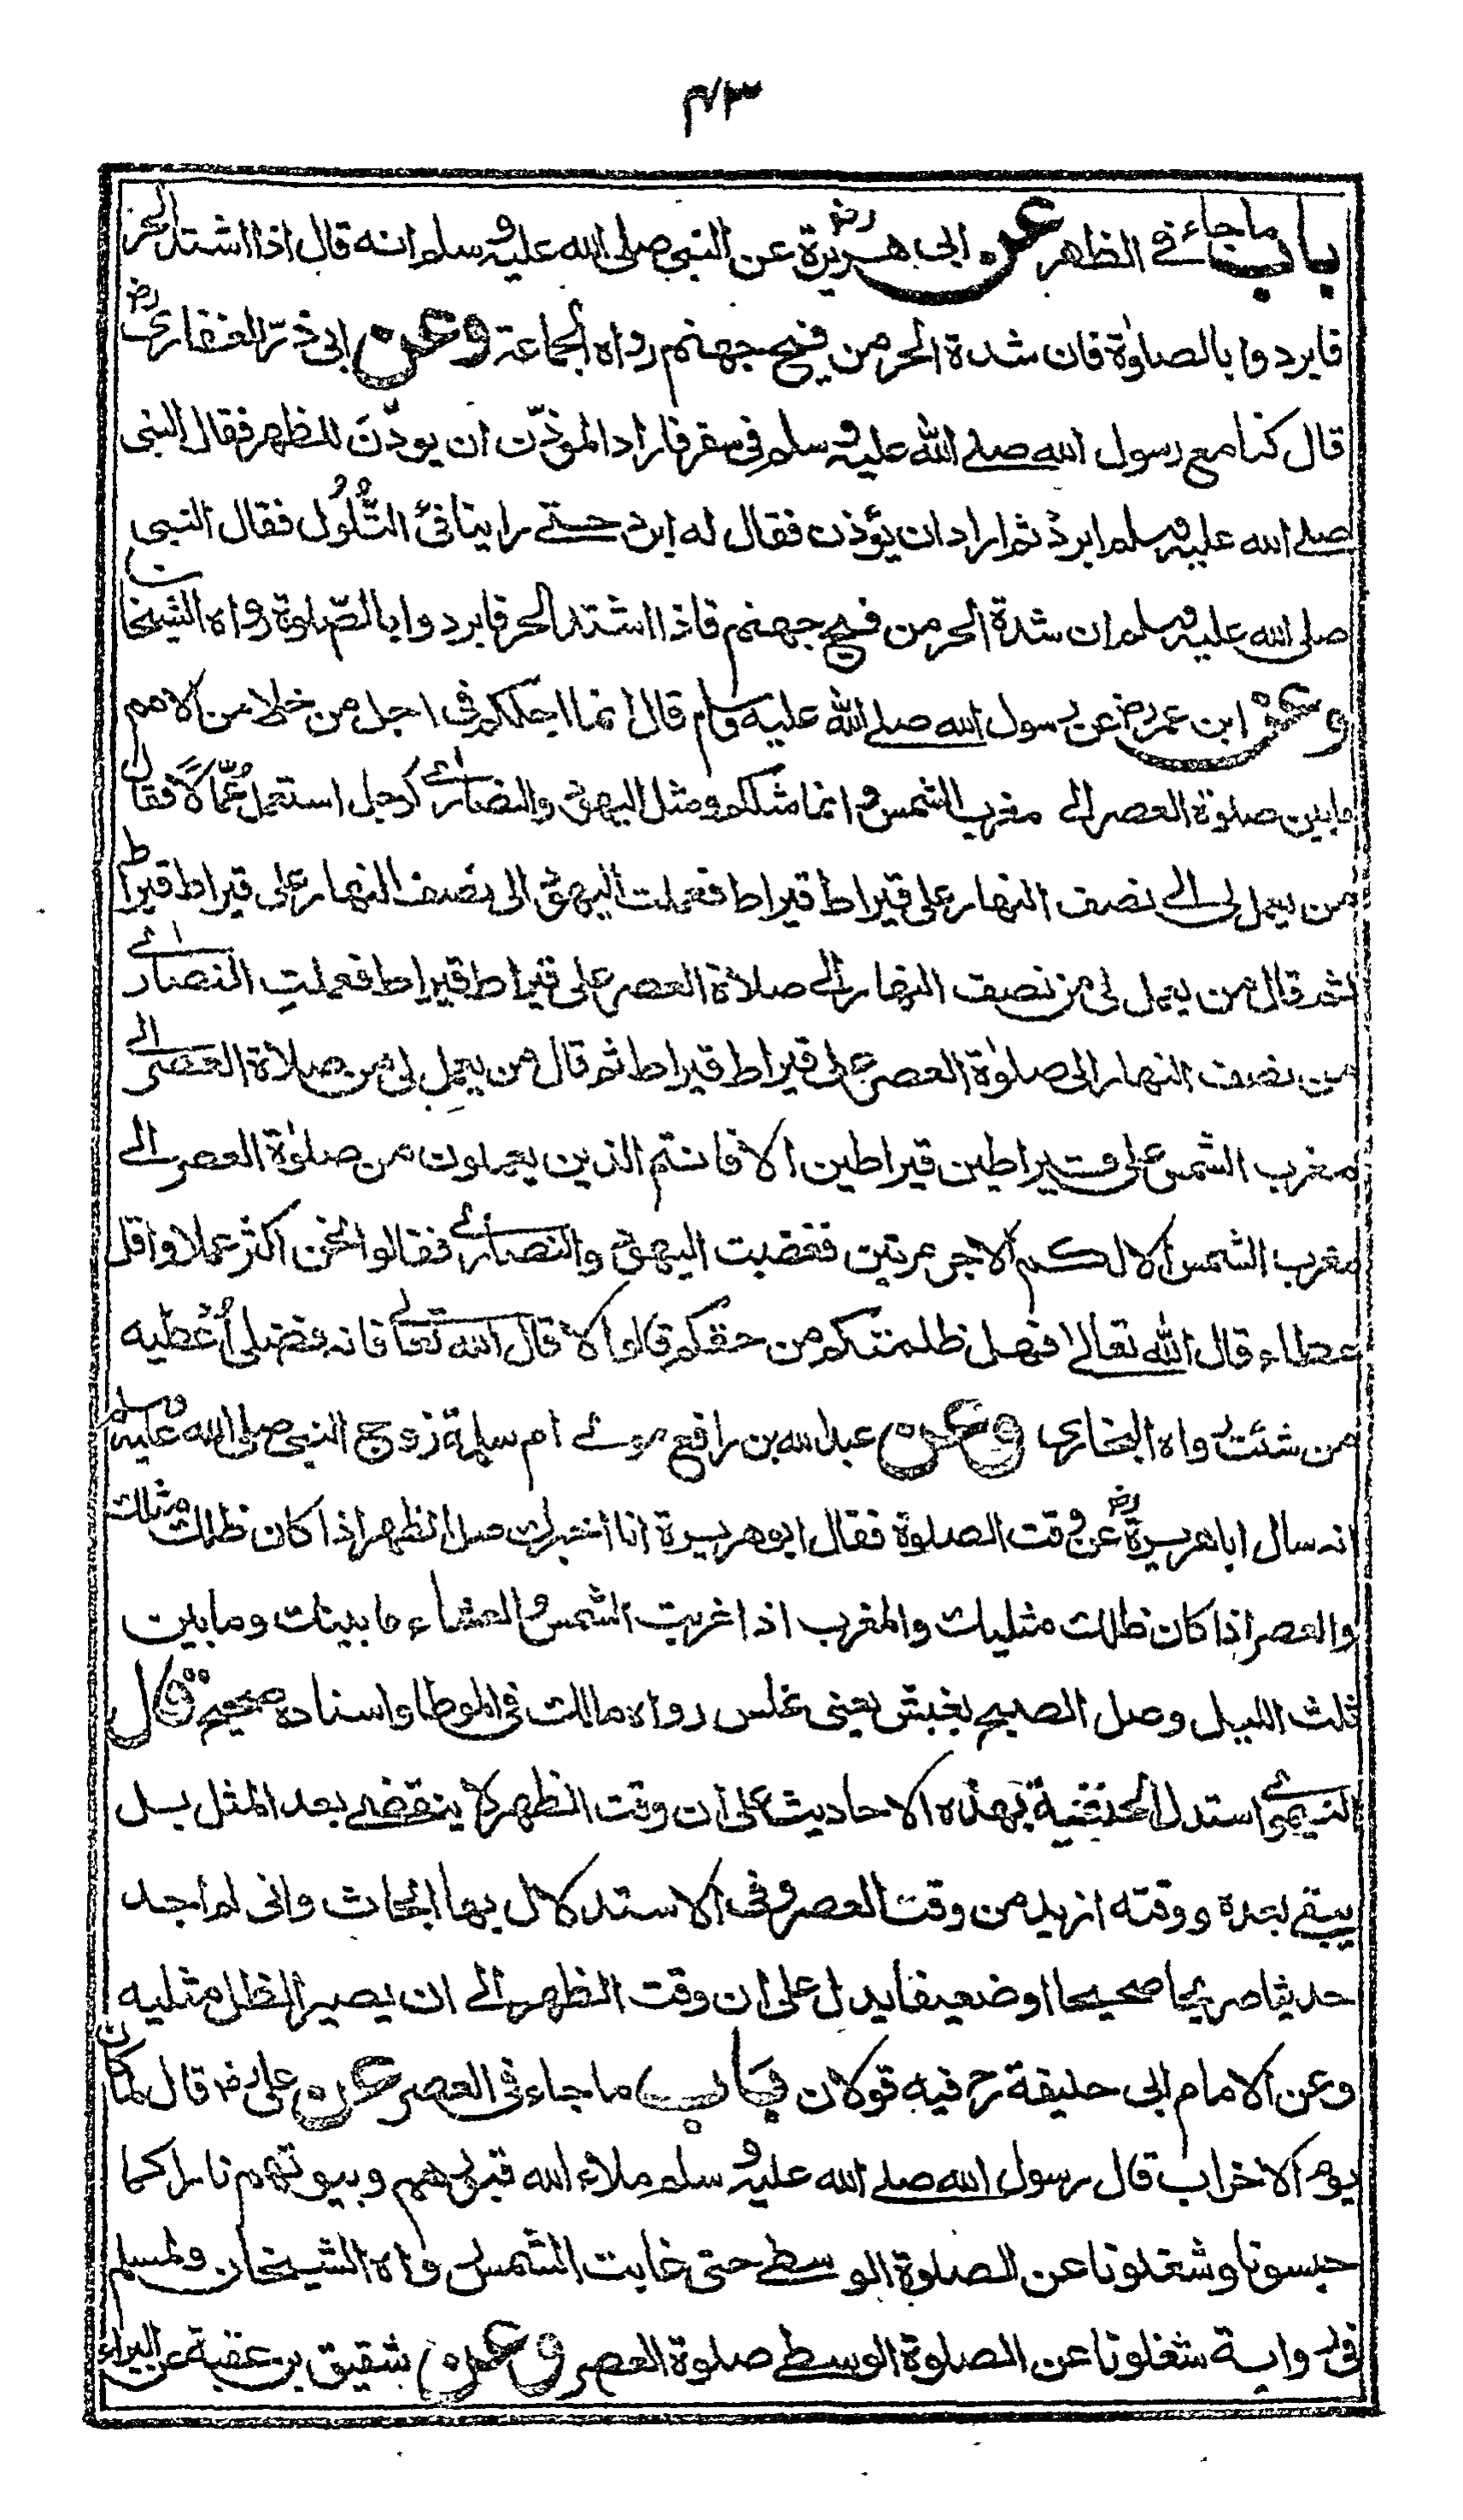 ٤٣
باب ماجاء في الظهر عن ابي هريرة رض عن النبي صلى الله عليه وسلم انه قال اذا اشتد الحر
فابردوا بالصلوٰة فان شدة الحر من فيح جهنم رواه الجماعة وعن ابي ذرّ الغفاري رض
قال كنا مع رسول الله صلے الله عليه وسلم في سفر فاراد المؤذّن ان يوذّنَ للظهر فقال النبي
صلے الله عليه وسلم ابردْ ثم اراد ان يؤذن فقال له ابرد حتے راينا فئَ التُّلُوْل فقال النبي
صلى الله عليه وسلم ان شدة الحر من فيح جهنم فاذا اشتد الحر فابردوا بالصّلوة رواه الشيخان
وعن ابن عمر رض عن رسول الله صلے الله عليه وسلم قال انما اجلكم في اجل من خلا من الامم
مابين صلوة العصر الے مغرب الشمس وانما مثلكم ومثل اليهود والنصارٰے كرجل استعمل عُمّالًا فقال
من يعمل لي الے نصف النهار على قيراط قيراط فعملت اليهود الى نصف النهار على قيراط قيراط
ثم قال من يعمل لي من نصف النهار الے صلاة العصر على قيراط قيراط فعملتِ النصارٰے
من نصف النهار الى صلوٰة العصر على قيراط قيراط ثم قال من يعمل لي من صلاة العصر الے
مغرب الشمس على قيراطين قيراطين الا فانتم الذين يعملون من صلوٰة العصر الے
مغرب الشمس الا لكم الاجر مرتين فغضبت اليهود والنصارٰے فقالوا نحن اكثر عملا واقل
عطاء قال الله تعالےٰ فهل ظلمتكم من حقكم قالوا لا قال الله تعالےٰ فانه فضلي اُعْطيه
من شئت رواه البخاري وعن عبد الله بن رافع مولے ام سلمة زوج النبي صلى الله عليه وسلم
انه سال اباهريرة رض عن وقت الصلوة فقال ابوهريرة انا اخبرك صل الظهر اذا كان ظلك مثلك
والعصر اذا كان ظلك مثليك والمغرب اذا غربت الشمس والعشاء ما بينك وما بين
ثلث الليل وصل الصبح بغبش يعني غلس رواه مالك في الموطا واسناده صحيح قال
النيموي استدل الحنفية بهذه الاحاديث على ان وقت الظهر لا ينقضے بعد المثل بل
يبقے بعده ووقته ازيد من وقت العصر وفي الاستدلال بها ابحاث واني لم اجد
حديثا صريحا صحيحا اوضعيفا يدل على ان وقت الظهر الے ان يصير الظل مثليه
وعن الامام ابي حنيفة رح فيه قولان باب ماجاء في العصر عن علي رض قال لما كان
يوم الاحزاب قال رسول الله صلے الله عليه وسلم ملاء الله قبورهم وبيوتهم نارا كما
حبسونا وشغلونا عن الصلوة الوسطے حتى غابت الشمس رواه الشيخان ولمسلم
في رواية شغلونا عن الصلوة الوسطے صلوة العصر وعن شقيق بن عقبة عن البراء